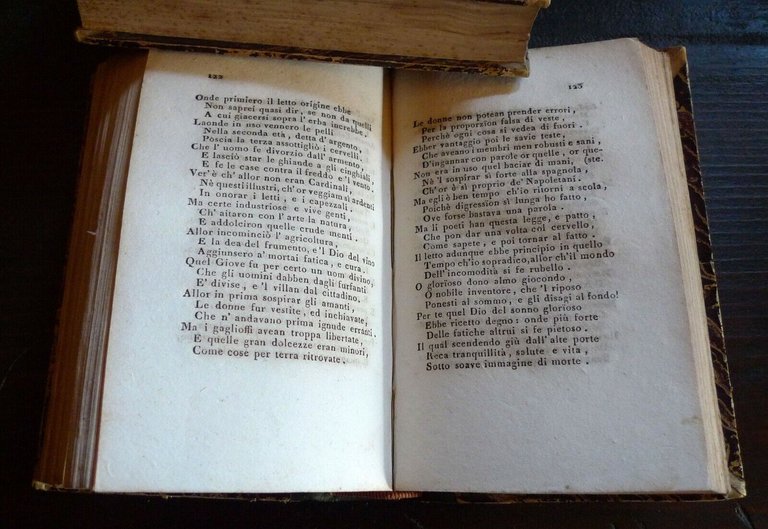 122
Onde primiero il letto origine ebbe
Non saprei quasi dir, se non da quelli
A cui giacersi sopra l'erba increbbe.
Laonde in uso vennero le pelli
Nella seconda età, detta d'argento,
Poscia la terza assottigliò i cervelli.
Che l'uomo fe divorzio dall'armento,
E lasciò star le ghiande a gli cinghiali,
E fe le case contra il freddo e'l vento.
Ver'è ch'allor non eran Cardinali,
Nè questi illustri, ch'or veggiam sì ardenti
In ornar i letti, e i capezzali.
Ma certe industriose e vive genti,
Ch'aitaron con l'arte la natura,
E addolciron quelle crude menti.
Allor incominciò l'agricoltura,
E la dea del frumento, e'l Dio del vino
Aggiunsero a' mortai fatica, e cura.
Quel Giove fu per certo un uom divino,
Che gli uomini dabben dagli furfanti
E' divise, e'l villan dal cittadino.
Allor in prima sospirar gli amanti,
Le donne fur vestite, ed inchiavate,
Che n'andavano prima ignude erranti.
Ma i gaglioffi avean troppa libertate,
E quelle gran dolcezze eran minori,
Come cose per terra ritrovate.
123
Le donne non potean prender errori,
Per la proporzion falsa di veste,
Perchè ogni cosa si vedea di fuori.
Ebber vantaggio poi le savie teste,
Che aveano i membri men robusti e sani,
D'ingannar con parole or quelle, or que-
Non era in uso quel baciar di mani, (ste.
Nè 'l sospirar sì forte alla spagnola,
Ch'or è sì proprio de' Napoletani.
Ma egli è ben tempo ch'io ritorni a scola,
Poichè digression sì lunga ho fatto,
Ove forse bastava una parola.
Ma li poeti han questa legge, e patto,
Che pon dar una volta col cervello,
Come sapete, e poi tornar al fatto.
Il letto adunque ebbe principio in quello
Tempo ch'io sopradico, allor ch'il mondo
Dell'incomodità si fe rubello.
O glorioso dono almo giocondo,
O nobile inventore, che 'l riposo
Ponesti al sommo, e gli disagi al fondo!
Per te quel Dio del sonno glorioso
Ebbe ricetto degno: onde più forte
Delle fatiche altrui si fe pietoso.
Il qual scendendo giù dall'alte porte
Reca tranquillità, salute e vita,
Sotto soave immagine di morte.